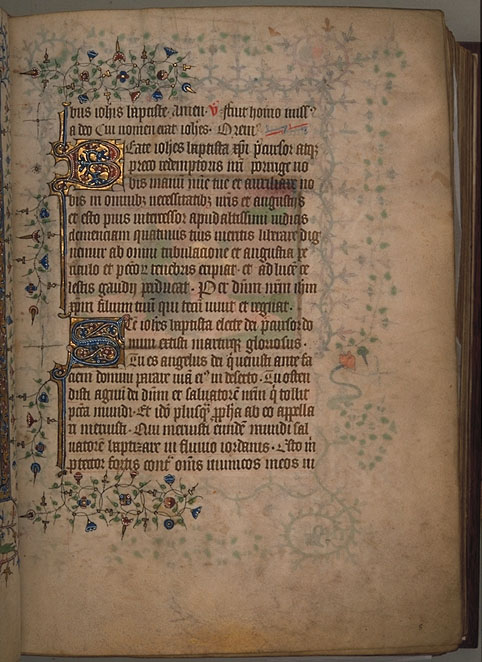 bus ioh̃is baptiste. amen. v̄ Fuit homo miss9
a deo Cui nomen erat ioh̃es. Orem9
Eate ioh̃es baptista xp̄i p̄cursor atq3
preco redemptoris nr̄i porrige no
bis manū mīe tue et auxiliare no
bis in omnib3 necessitatib3 nr̄is et angustijs
et esto pius intercessor apud altissimi iudicis
clemenciam quatinus tuis meritis liberare dig
nemur ab omni tribulacione et angustia pe
riculo et peccōr tenebris eripiat et ad lucē ce
lestis gaudij perducat. Per dn̄m nr̄m ihm̄
xp̄m filium tuū qui tecū viuit et regnat.
Ancte ioh̃es baptista electe dei p̄cursor do
mini extisti martirq3 gloriosus.
Tu es angelus dei q̇ uenisti ante fa
ciem domini parare uiā ei9 in deserto. Tu osten
disti agnū dei dūm et saluatorē nr̄m q̇ tollit
pc̄ca mundi. Et iō plusq̄3 pp̄ha ab eo appella
ri meruisti. Qui meruisti eundē mundi sal
uatorē baptizare in fluuio iordanis. Esto in
p̄cator fortis contra om̄s inimicos meos in